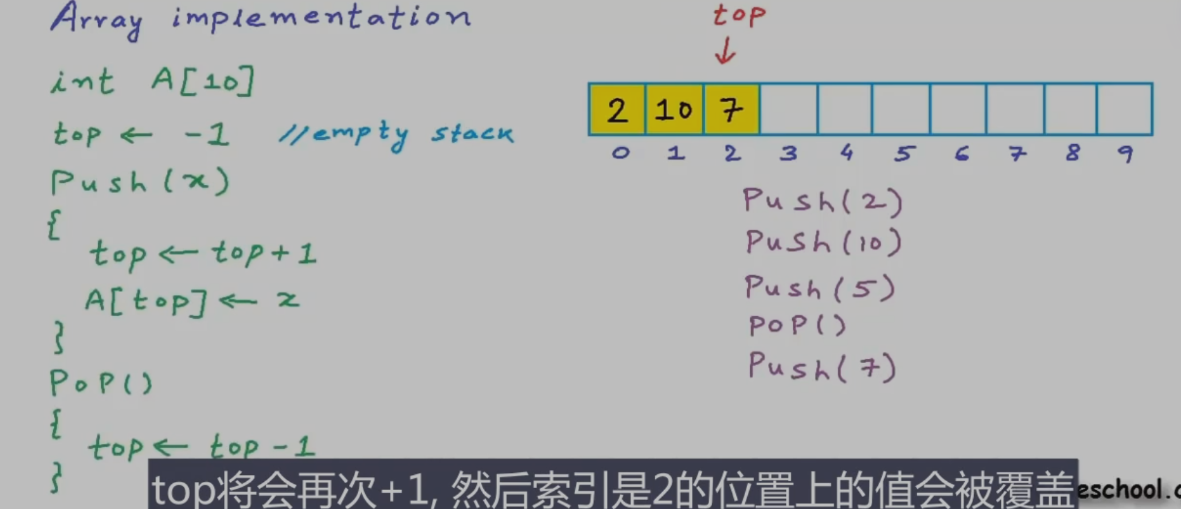 Array implementation
int A[10]
top ← -1 //empty stack
Push(x)
{
top ← top+1
A[top] ← x
}
PoP()
{
top ← top -1
}
top
↓
2 10 7
0 1 2 3 4 5 6 7 8 9
Push(2)
Push(10)
Push(5)
PoP()
Push(7)
top将会再次+1, 然后索引是2的位置上的值会被覆盖
eschool.c